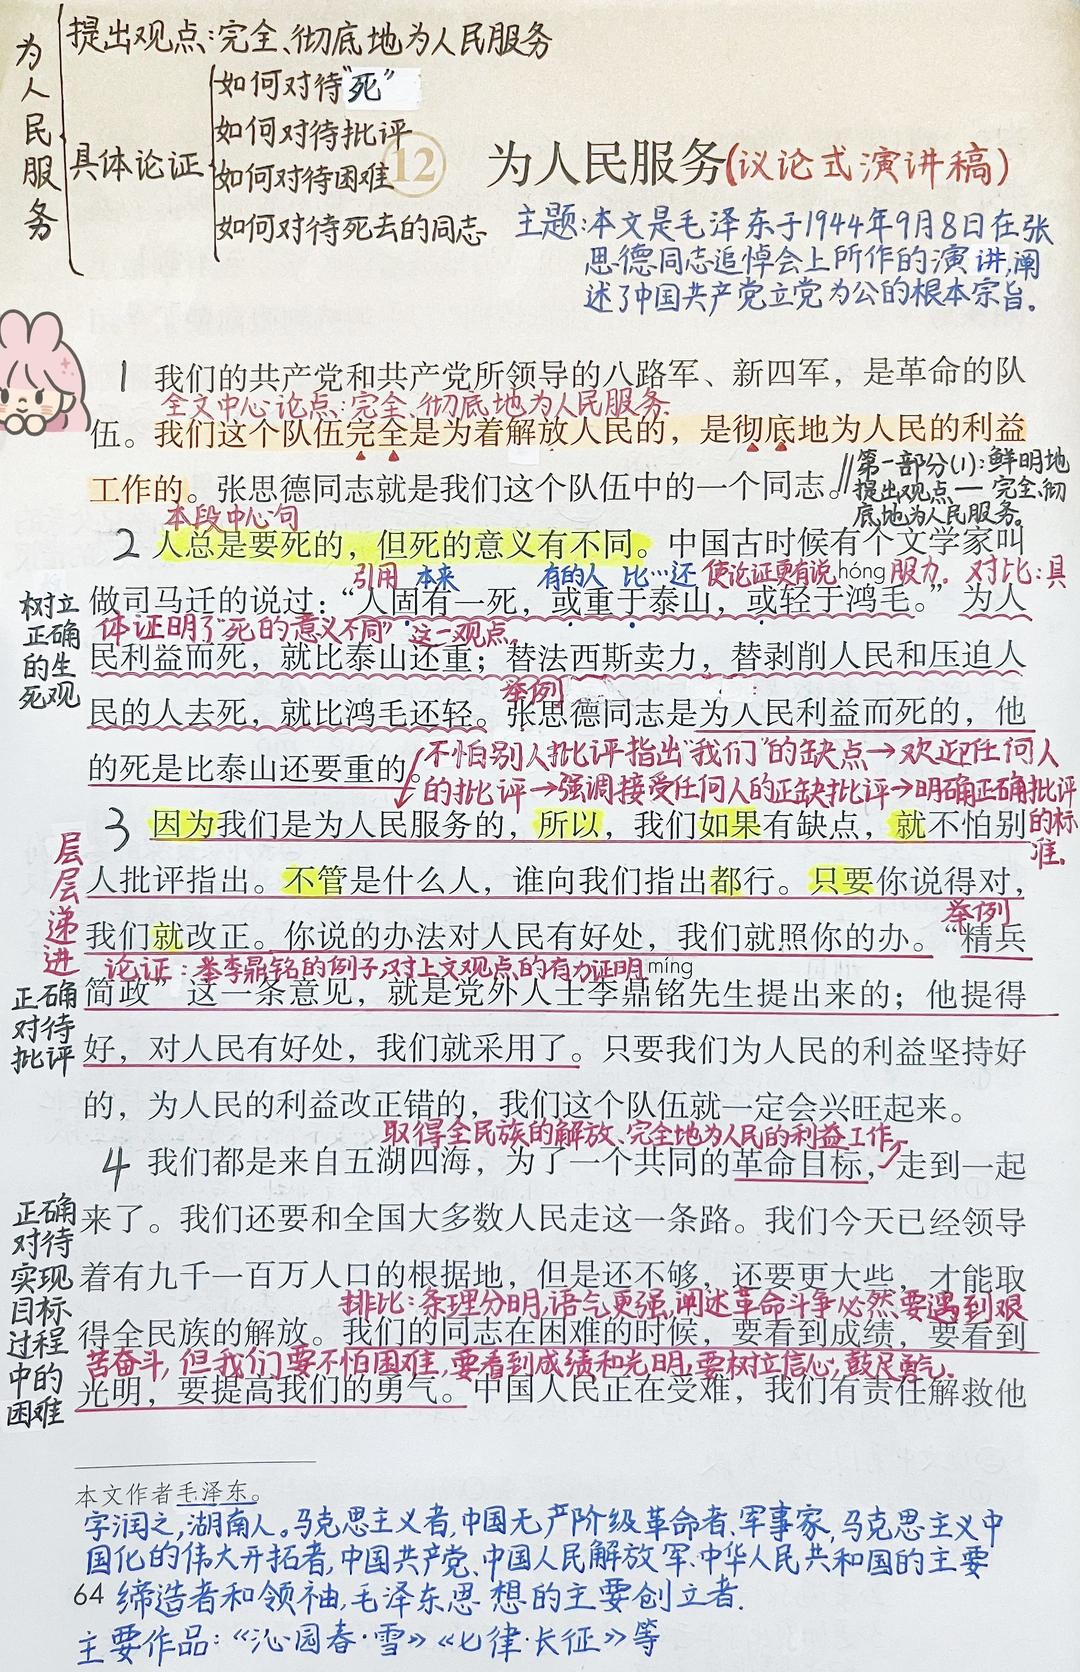 为人民服务
提出观点:完全、彻底地为人民服务
具体论证
如何对待“死”
如何对待批评
如何对待困难
如何对待死去的同志
12
为人民服务(议论式演讲稿)
主题:本文是毛泽东于1944年9月8日在张
思德同志追悼会上所作的演讲,阐
述了中国共产党立党为公的根本宗旨。
1 我们的共产党和共产党所领导的八路军、新四军,是革命的队
全文中心论点:完全、彻底地为人民服务.
伍。我们这个队伍完全是为着解放人民的,是彻底地为人民的利益
工作的。张思德同志就是我们这个队伍中的一个同志。
第一部分(1):鲜明地
提出观点——完全、彻
底地为人民服务。
本段中心句
2 人总是要死的,但死的意义有不同。中国古时候有个文学家叫
引用 本来 有的人 比…还 使论证更有说服力. 对比:具
hóng
做司马迁的说过:“人固有一死,或重于泰山,或轻于鸿毛。”为人
体证明了“死的意义不同”这一观点。
民利益而死,就比泰山还重;替法西斯卖力,替剥削人民和压迫人
举例
民的人去死,就比鸿毛还轻。张思德同志是为人民利益而死的,他
的死是比泰山还要重的。
树立
正确
的生
死观
不怕别人批评指出“我们”的缺点→欢迎任何人
的批评→强调接受任何人的正缺批评→明确正确批评
的标
准.
3 因为我们是为人民服务的,所以,我们如果有缺点,就不怕别
人批评指出。不管是什么人,谁向我们指出都行。只要你说得对,
举例
我们就改正。你说的办法对人民有好处,我们就照你的办。“精兵
论证:举李鼎铭的例子,对上文观点的有力证明
míng
简政”这一条意见,就是党外人士李鼎铭先生提出来的;他提得
好,对人民有好处,我们就采用了。只要我们为人民的利益坚持好
的,为人民的利益改正错的,我们这个队伍就一定会兴旺起来。
层
层
递
进
正确
对待
批评
取得全民族的解放、完全地为人民的利益工作
4 我们都是来自五湖四海,为了一个共同的革命目标,走到一起
来了。我们还要和全国大多数人民走这一条路。我们今天已经领导
着有九千一百万人口的根据地,但是还不够,还要更大些,才能取
排比:条理分明,语气更强,阐述革命斗争必然要遇到艰
得全民族的解放。我们的同志在困难的时候,要看到成绩,要看到
苦奋斗,但我们要不怕困难,要看到成绩和光明,要树立信心,鼓足勇气。
光明,要提高我们的勇气。中国人民正在受难,我们有责任解救他
正确
对待
实现
目标
过程
中的
困难
本文作者毛泽东。
字润之,湖南人。马克思主义者,中国无产阶级革命者、军事家,马克思主义中
国化的伟大开拓者,中国共产党、中国人民解放军、中华人民共和国的主要
缔造者和领袖,毛泽东思想的主要创立者.
64
主要作品:《沁园春·雪》《七律·长征》等